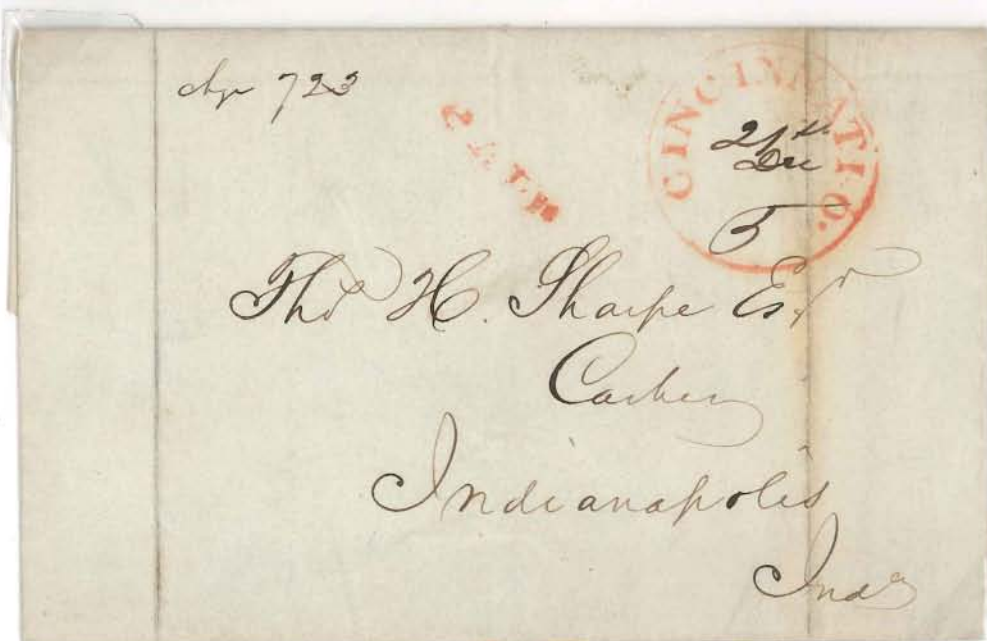 723
CINCINNATI O.
Dec
5
Tho H. Sharpe Esqr
Cashier
Indianapolis
Inda